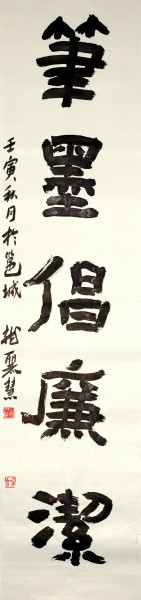 筆墨倡廉潔
壬寅秋月於邕城 龍聚慧